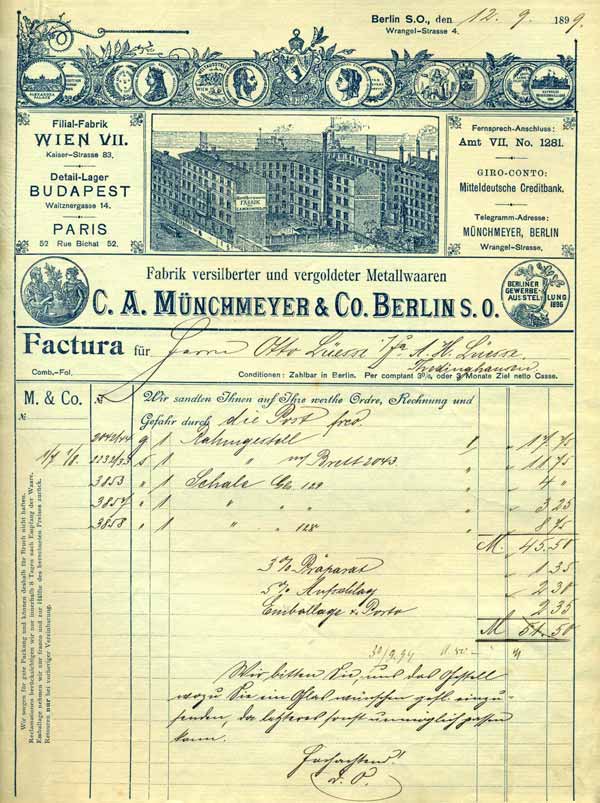 Berlin S.O., den 12. 9. 1899.
Wrangel-Strasse 4.
Filial-Fabrik
WIEN VII.
Kaiser-Strasse 83.
Detail-Lager
BUDAPEST
Waitznergasse 14.
PARIS
52 Rue Bichat 52.
FABRIK
Fernsprech-Anschluss:
Amt VII, No. 1281.
GIRO-CONTO:
Mitteldeutsche Creditbank.
Telegramm-Adresse:
MÜNCHMEYER, BERLIN
Wrangel-Strasse.
Fabrik versilberter und vergoldeter Metallwaaren
C. A. MÜNCHMEYER & CO. BERLIN S.O.
BERLINER
GEWERBE-
AUSSTEL LUNG
1896
Factura für Herrn Otto Lüesse i/fa A. H. Lüesse
Thedinghausen
Comb.-Fol.
Conditionen: Zahlbar in Berlin. Per comptant 3%, oder 3 Monate Ziel netto Casse.
M. & Co.
№
№
Wir sandten Ihnen auf Ihre werthe Ordre, Rechnung und
Gefahr durch die Post frco.
2042/44 9 1 Rahmgestell 17 75
2232/33 5 1 " m/ Brett 2043 11 75
3853 " 1 Schale Gls 129 4 "
3857 " 1 " " 3 25
3858 " 1 " " 128 8 75
M. 45.50
3% Präparat 1 35
5% Aufschlag 2 30
Emballage & Porto 2 35
M 51.50
Wir bitten Sie, uns das Gestell
wozu Sie ein Glas wünschen gefl. einzu-
senden, da letzteres sonst unmöglich passen
kann.
Hochachtend!
d. O.
Wir wegen für gute Packung und können deshalb für Bruch nicht haften.
Reclamationen berücksichtigen wir nur innerhalb 8 Tagen nach Empfang der Waare.
Emballage nehmen wir nur franco und zur Hälfte des berechneten Preises zurück.
Retouren nur bei vorheriger Vereinbarung.